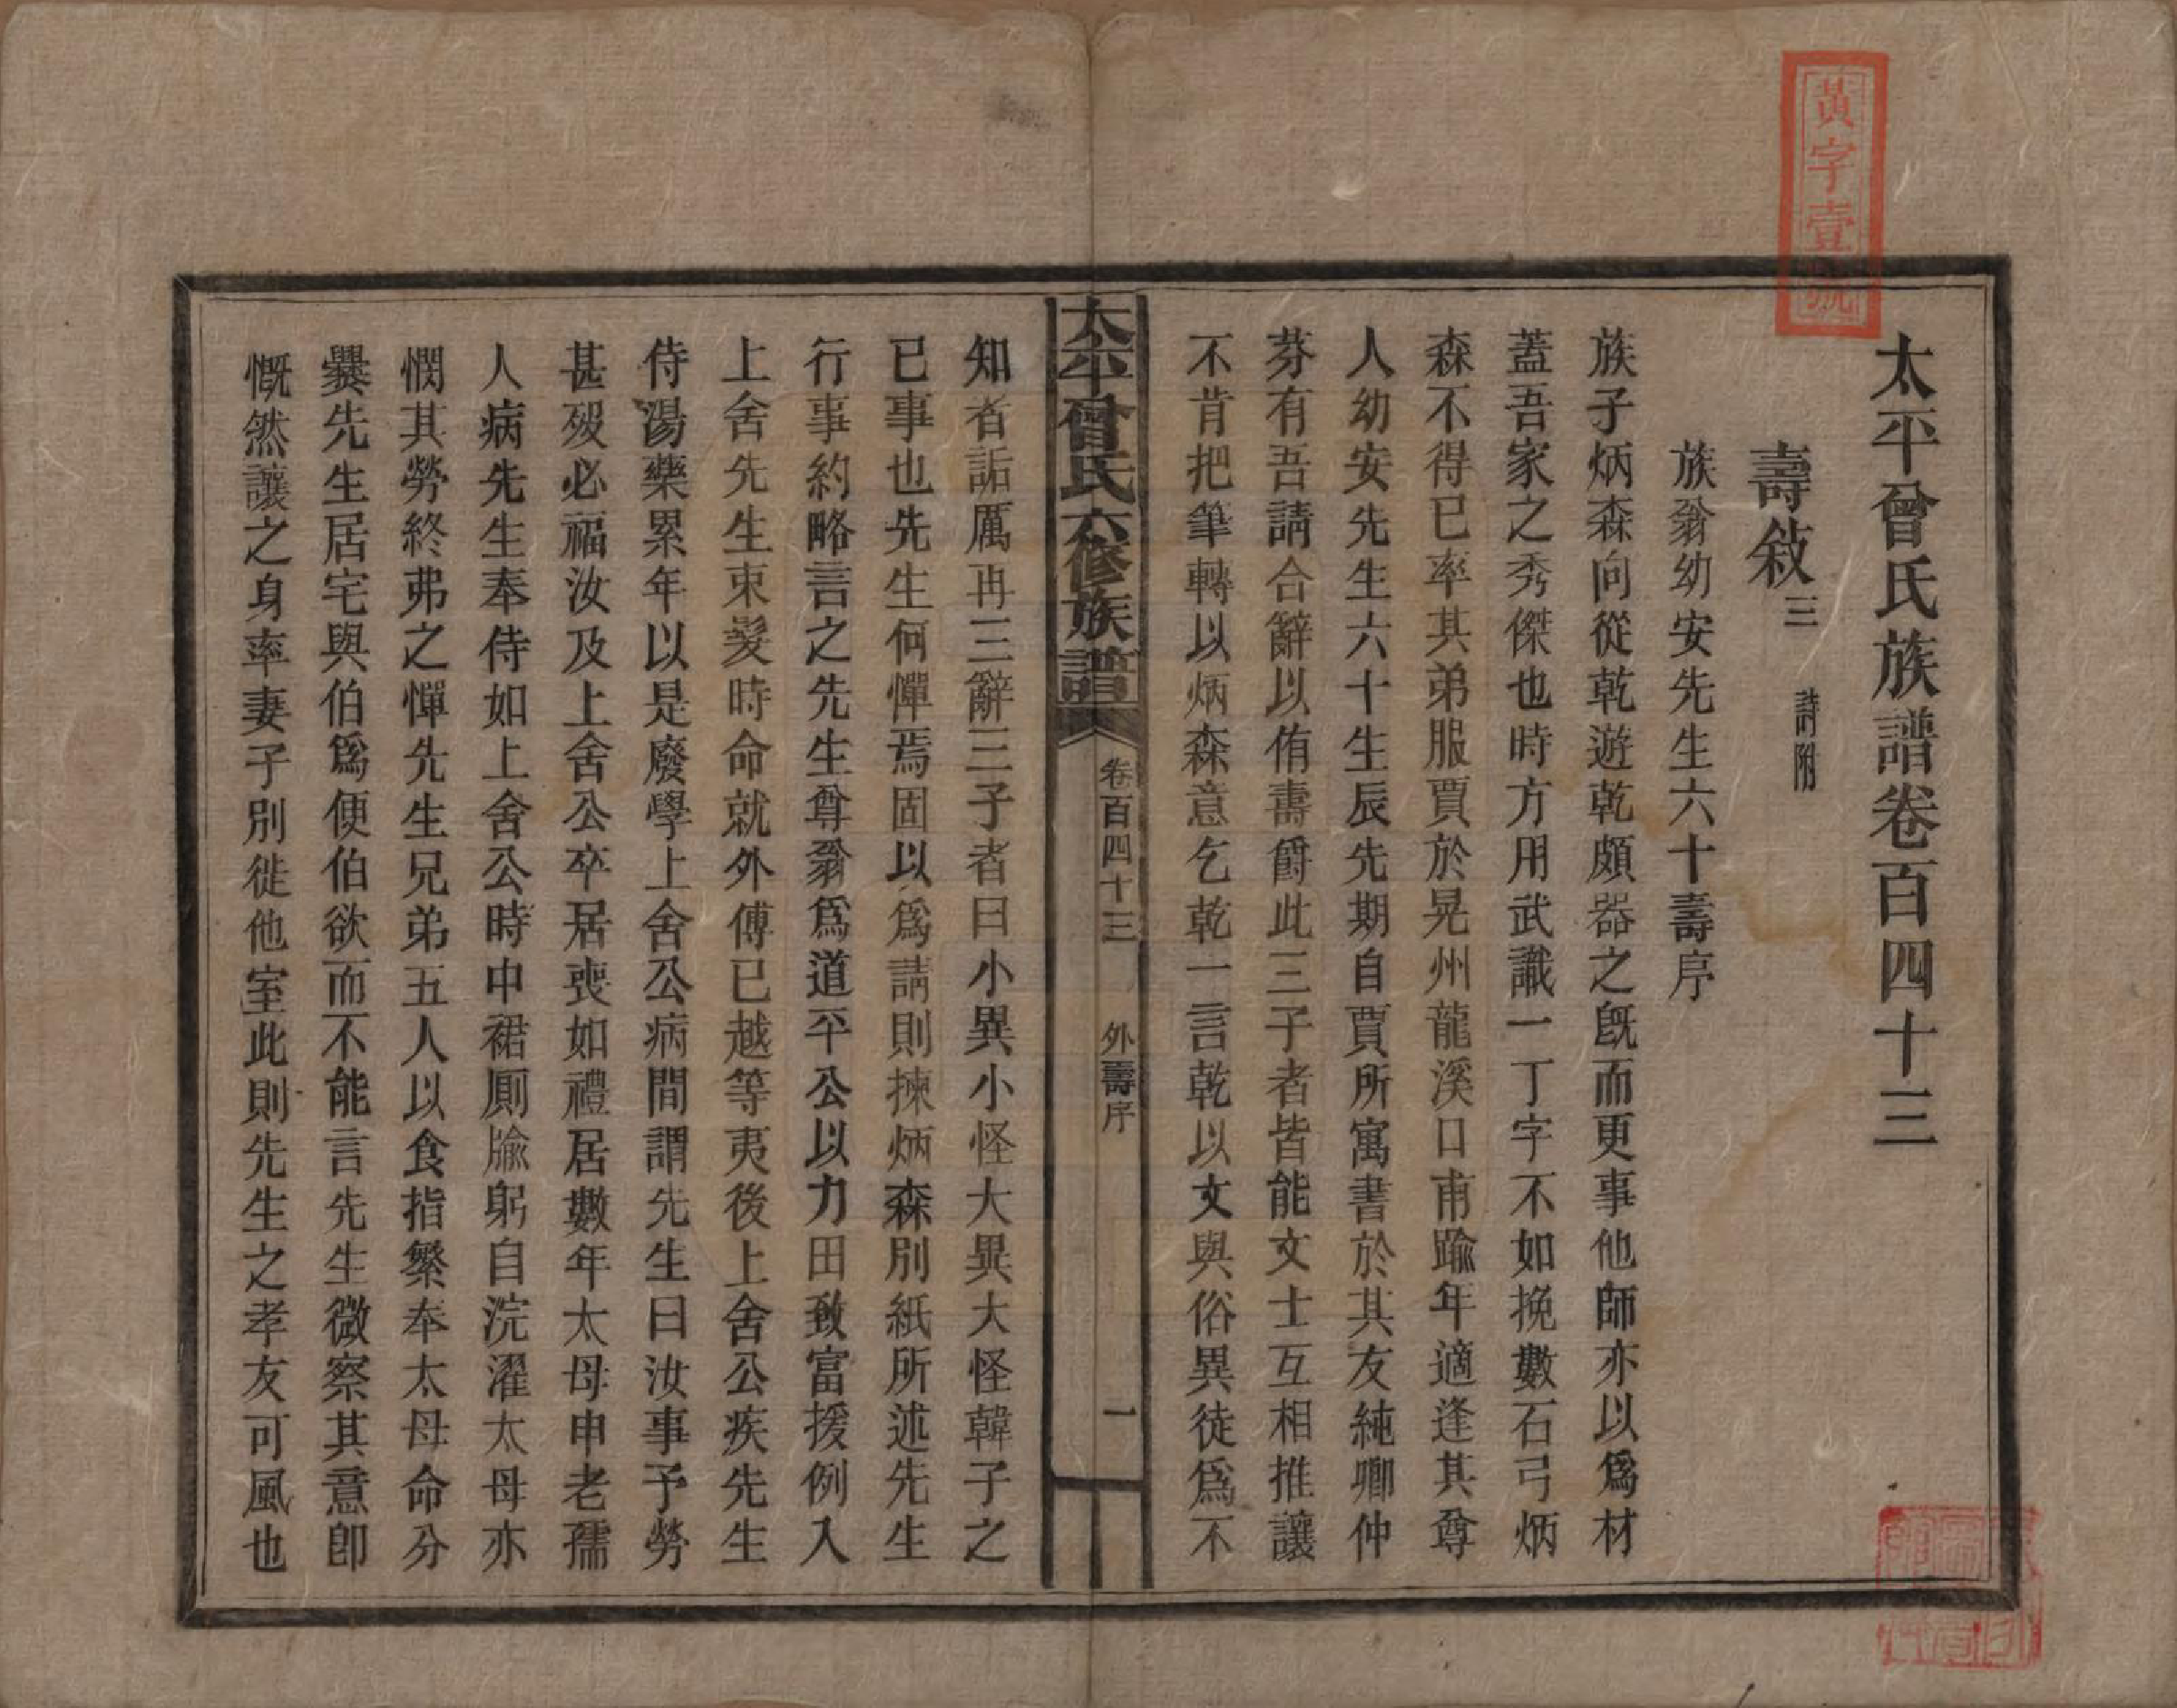 黃字壹號
太平曾氏族譜卷百四十三
壽敘三 詩附
族翁幼安先生六十壽序
族子炳森向從乾遊乾頗器之旣而更事他師亦以爲材
蓋吾家之秀傑也時方用武讖一丁字不如挽數石弓炳
森不得已率其弟服賈於晃州龍溪口甫踰年適逢其尊
人幼安先生六十生辰先期自賈所寓書於其友純卿仲
芬有吾請合辭以侑壽爵此三子者皆能文士互相推讓
不肯把筆轉以炳森意乞乾一言乾以文與俗異徒爲不
太平曾氏六修族譜 卷百四十三 外壽序 一
知者詬厲再三辭三子者曰小異小怪大異大怪韓子之
已事也先生何憚焉固以爲請則揀炳森別紙所述先生
行事約略言之先生尊翁爲道平公以力田致富援例入
上舍先生束髮時命就外傅已越等夷後上舍公疾先生
侍湯藥累年以是廢學上舍公病間謂先生曰汝事予勞
甚歿必福汝及上舍公卒居喪如禮居數年太母申老孺
人病先生奉侍如上舍公時中裙厠牏躬自浣濯太母亦
憫其勞終弗之憚先生兄弟五人以食指繁奉太母命分
爨先生居宅與伯爲便伯欲而不能言先生微察其意卽
慨然讓之身率妻子別徙他室此則先生之孝友可風也